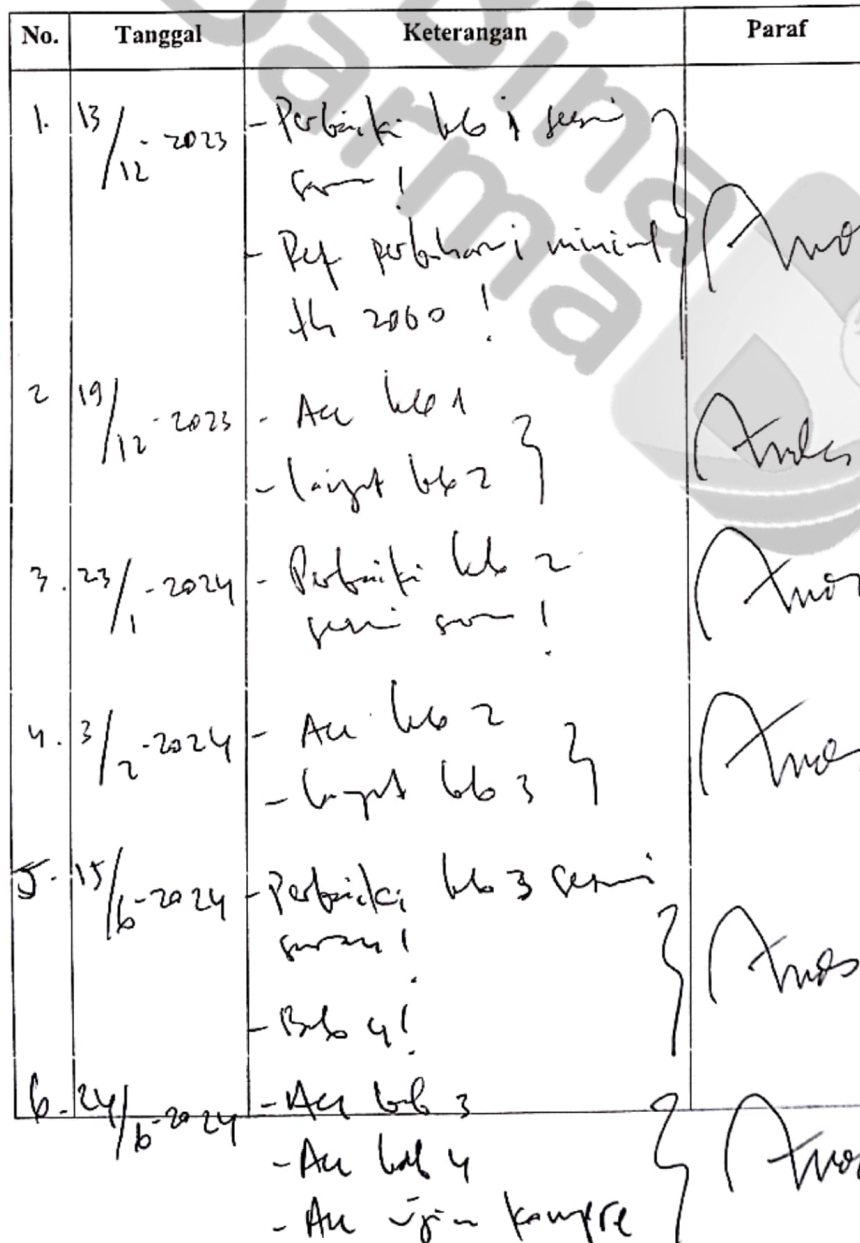 No. Tanggal Keterangan Paraf
1. 13/12-2023 - Perbaiki bab 1 sesuai
saran!
- Ref perbaharui minimal
th 2000!
2 19/12-2023 - Acc bab 1
- lanjut bab 2
3. 23/1-2024 - Perbaiki bab 2
sesuai saran!
4. 3/2-2024 - Acc bab 2
- lanjut bab 3
5. 15/6-2024 - Perbaiki bab 3 sesuai
saran!
- Bab 4!
6. 24/6-2024 - Acc bab 3
- Acc bab 4
- Acc ujian kompre
Bina
Darma